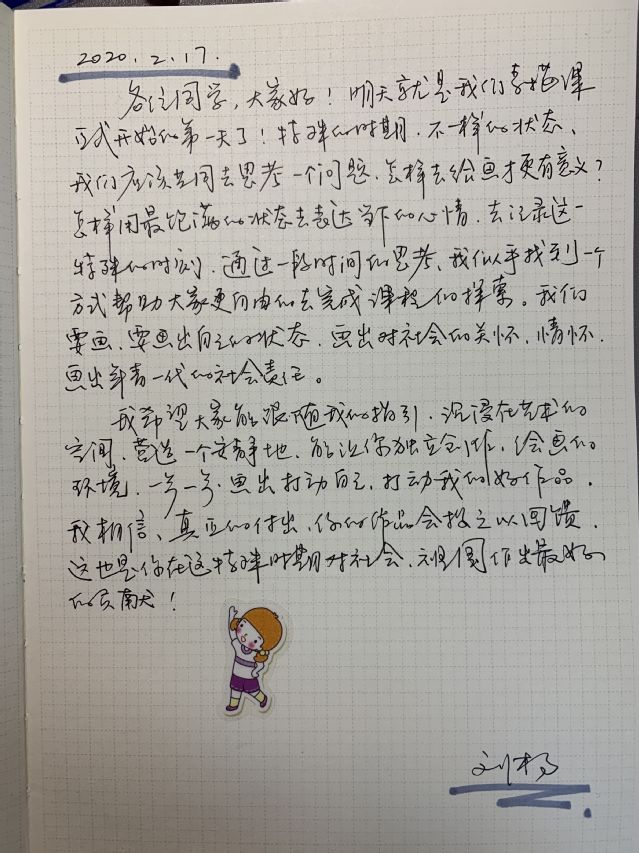 2020.2.17.
各位同学，大家好！明天就是我们素描课
正式开始的第一天了！特殊的时期，不一样的状态，
我们应该共同去思考一个问题，怎样去绘画才更有意义？
怎样用最饱满的状态去表达当下的心情，去记录这一
特殊的时刻，通过一段时间的思考，我似乎找到一个
方式帮助大家更自由的去完成课程的探索。我们
要画，要画出自己的状态，画出对社会的关怀，情怀，
画出年青一代的社会责任。
我希望大家能跟随我的指引，沉浸在艺术的
空间，营造一个安静地，能让你独立创作，绘画的
环境，一步一步，画出打动自己，打动我们的好作品，
我相信，真正的付出，你的作品会报之以回馈，
这也是你在这特殊时期对社会、祖国作出最好
的贡献！
刘杨